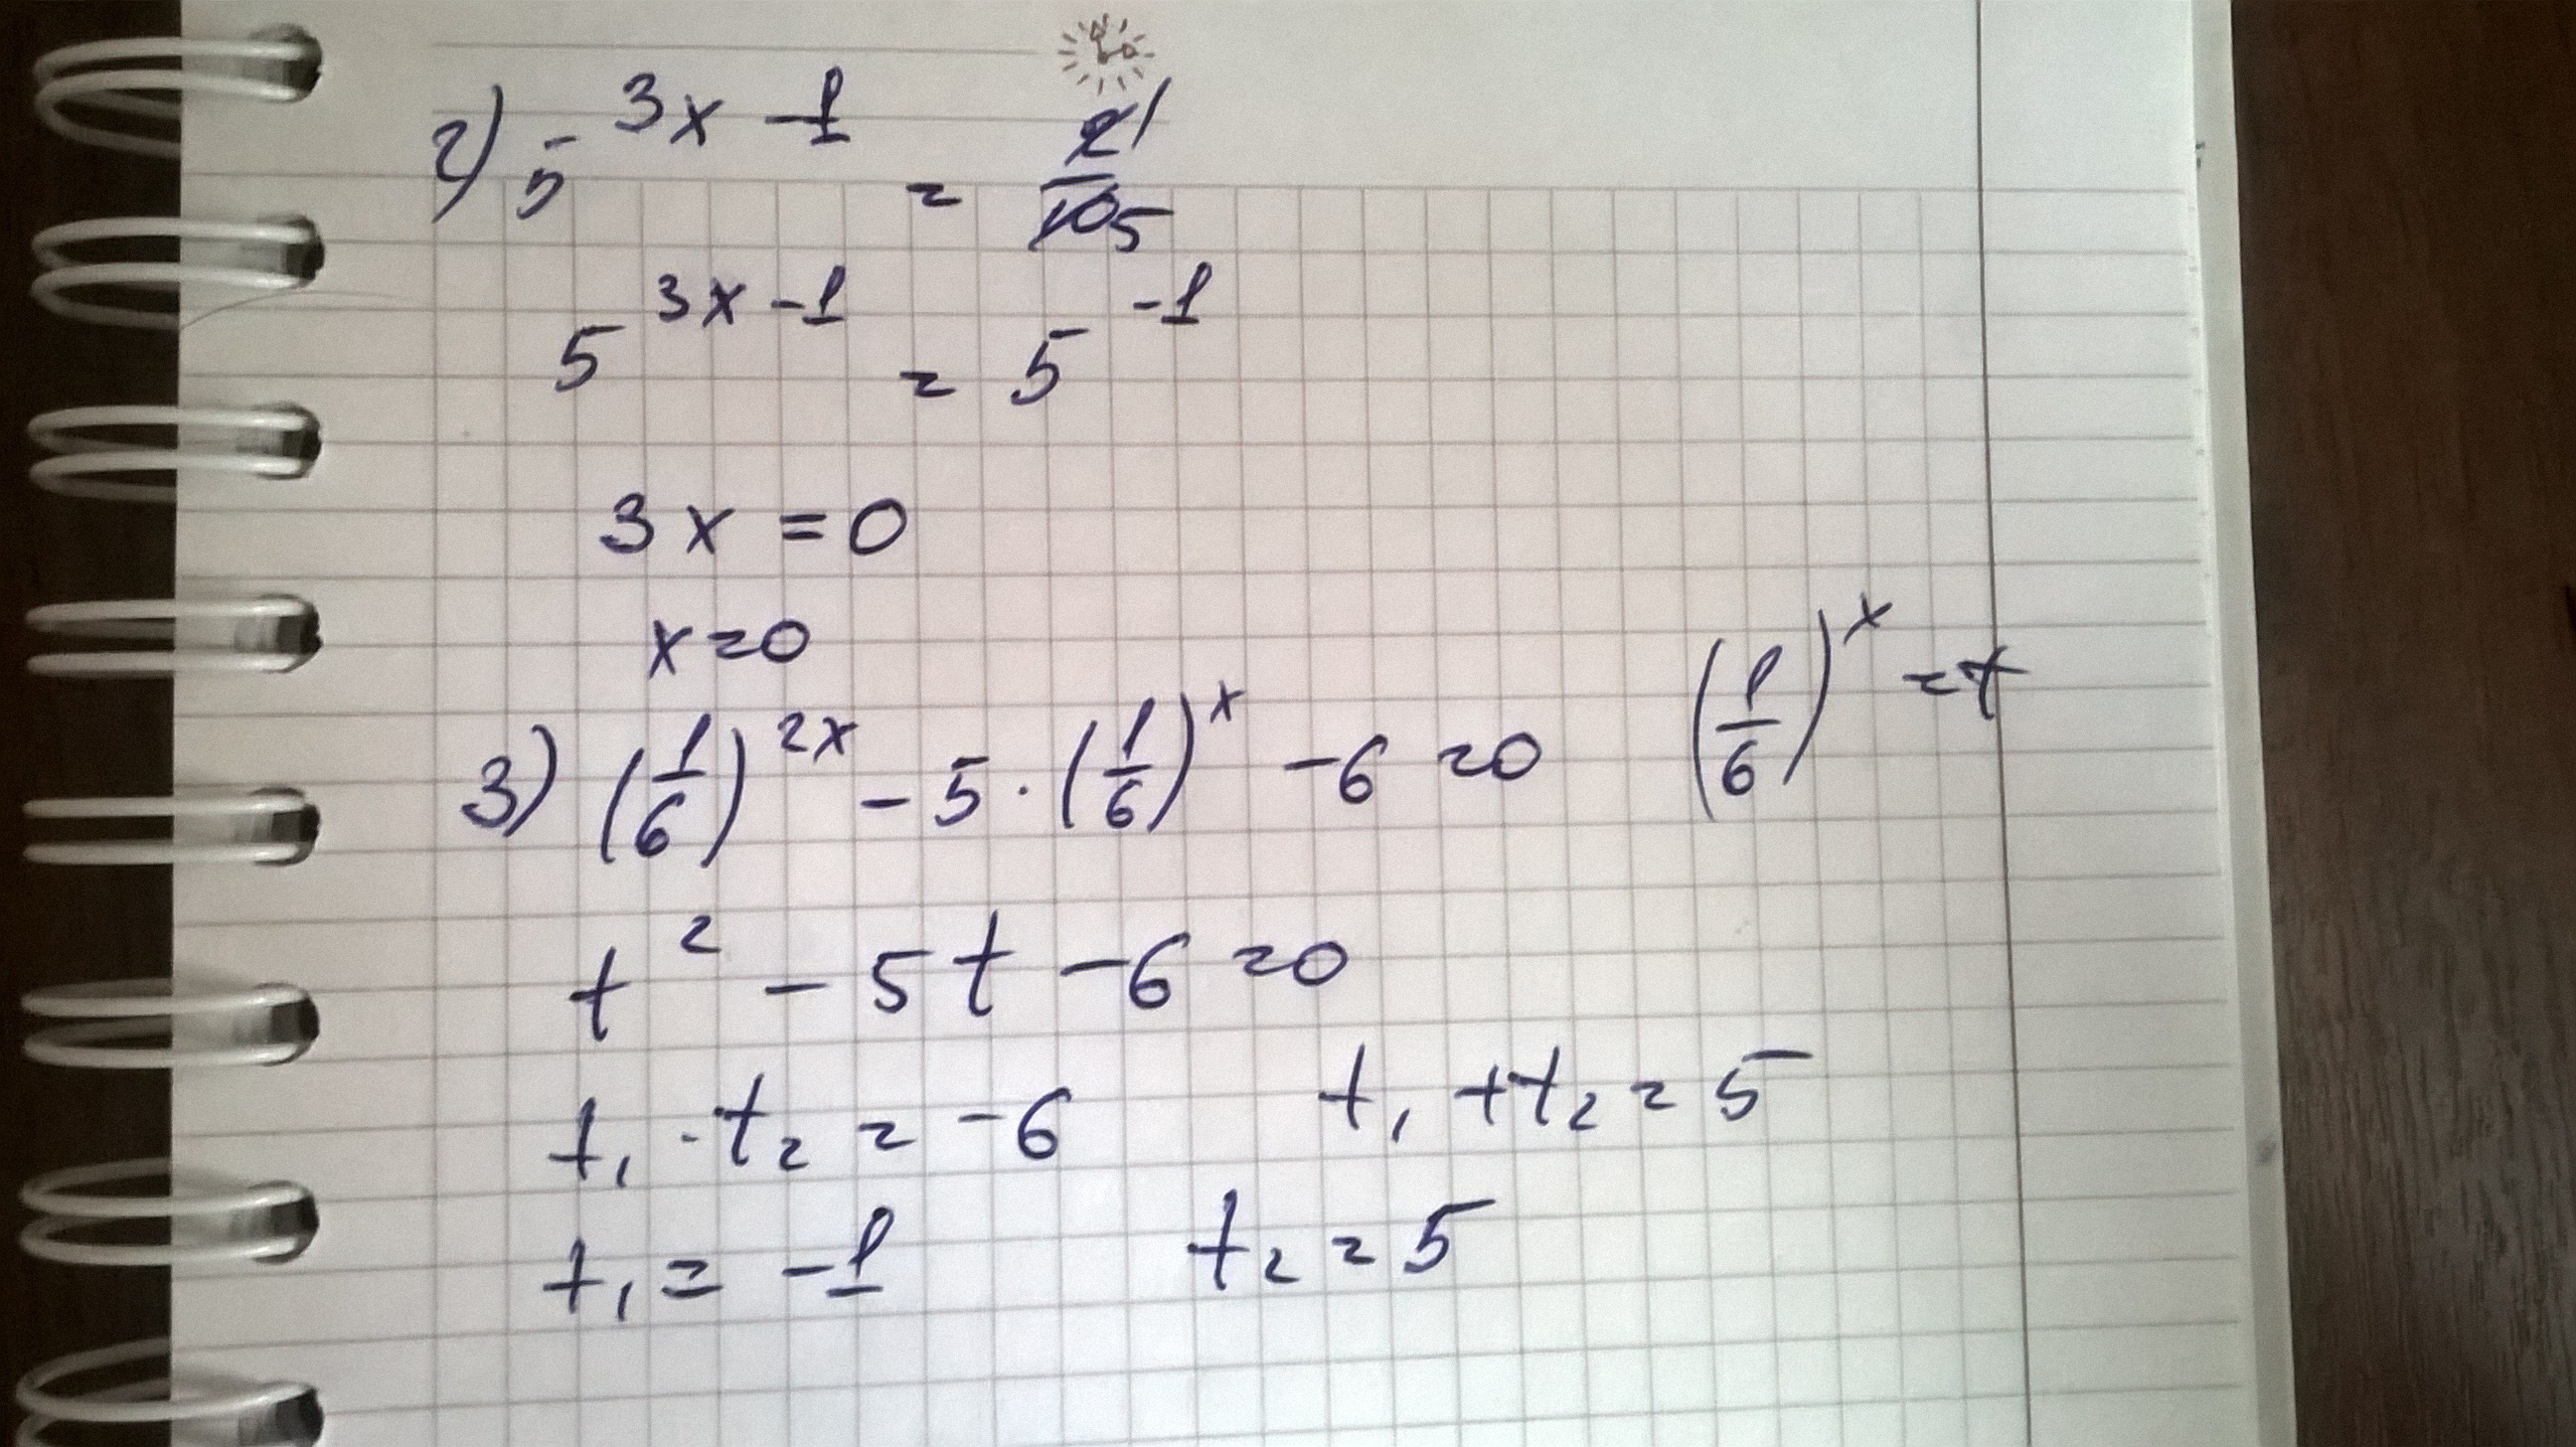 2) 5^(3x-1) = 2̶ 1/1̶0̶ 5
5^(3x-1) = 5^(-1)
3x = 0
x = 0
3) (1/6)^(2x) - 5 · (1/6)^x - 6 = 0 (1/6)^x = t
t² - 5t - 6 = 0
t₁ · t₂ = -6 t₁ + t₂ = 5
t₁ = -1 t₂ = 5